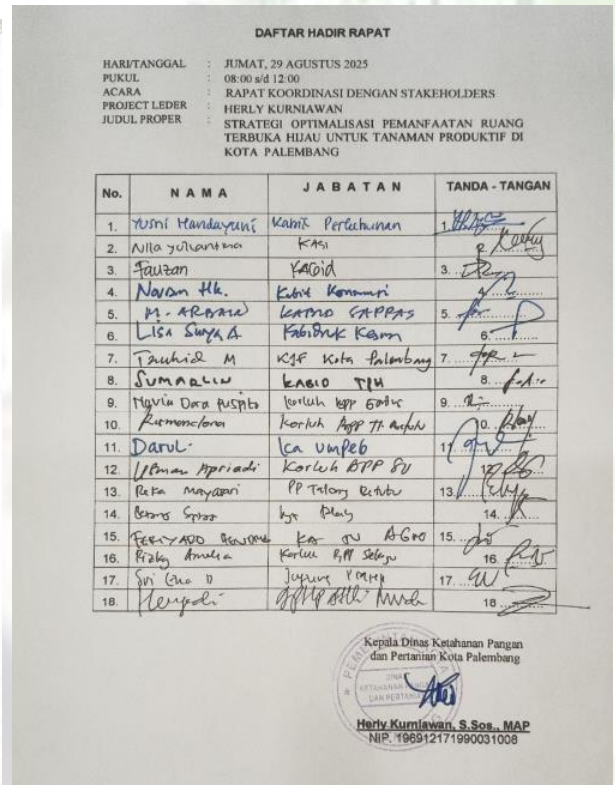 DAFTAR HADIR RAPAT
HARI/TANGGAL : JUMAT, 29 AGUSTUS 2025
PUKUL : 08:00 s/d 12:00
ACARA : RAPAT KOORDINASI DENGAN STAKEHOLDERS
PROJECT LEDER : HERLY KURNIAWAN
JUDUL PROPER : STRATEGI OPTIMALISASI PEMANFAATAN RUANG
TERBUKA HIJAU UNTUK TANAMAN PRODUKTIF DI
KOTA PALEMBANG
No. NAMA JABATAN TANDA - TANGAN
1. Yusni Handayuni Kabid Perkebunan 1.
2. Nila yuliantina KASI 2.
3. Fauzan KABid 3.
4. Novran Hk. Kabid Konsumsi 4.
5. M. 5.
6. Lisa Surya A 6.
7. Tauhid M KJF Kota Palembang 7.
8. SUMARLIN KABID TPH 8.
9. Dora Puspita Korluh BPP 9.
10. Korluh BPP 10.
11. Darul Ka 11.
12. Usman Apriadi Korluh BPP SU 12.
13. Reka Mayasari PP Talang Betutu 13.
14. 14.
15. KA AGRO 15.
16. Rizky Amelia Korluh BPP 16.
17. Sri 17.
18. Heryadi 18
Kepala Dinas Ketahanan Pangan
dan Pertanian Kota Palembang
DINAS
KETAHANAN PANGAN
DAN PERTANIAN
Herly Kurniawan, S.Sos., MAP
NIP. 196912171990031008